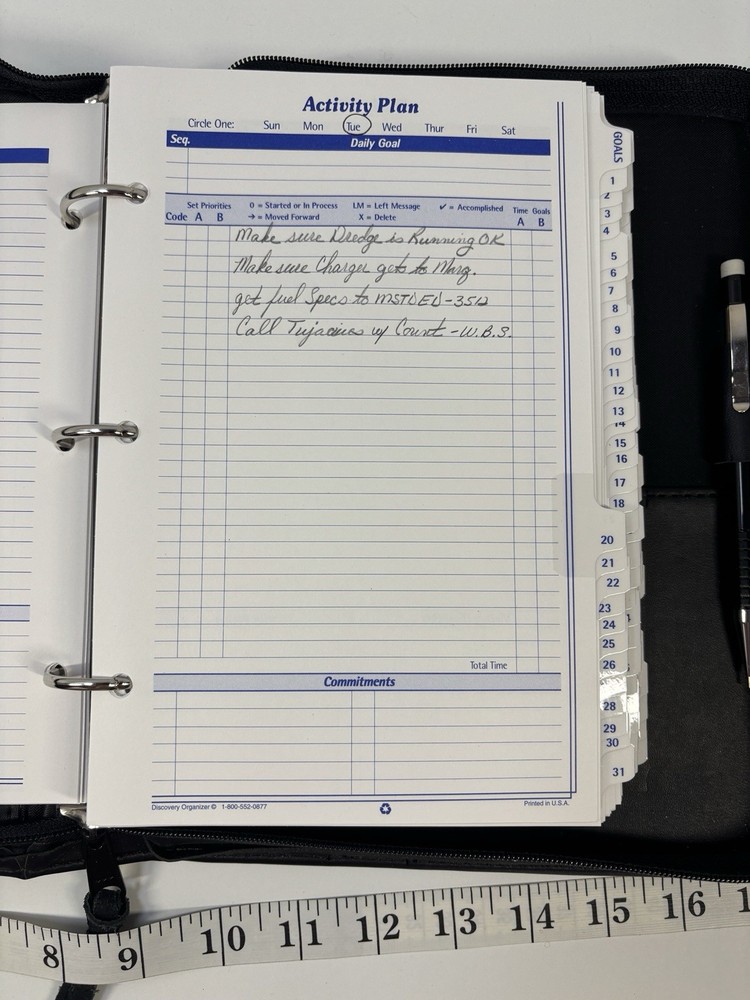 Activity Plan
Circle One: Sun Mon Tue Wed Thur Fri Sat
Seq. Daily Goal
Set Priorities O = Started or In Process LM = Left Message ✔ = Accomplished Time Goals
Code A B ➔ = Moved Forward X = Delete A B
Make sure Dredge is Running OK
Make sure Charger gets to Marg.
get fuel Specs to
Call w/ Count - W.B.S.
Total Time
Commitments
Discovery Organizer © 1-800-552-0877 Printed in U.S.A.
GOALS
1
2
3
4
5
6
7
8
9
10
11
12
13
14
15
16
17
18
20
21
22
23
24
25
26
28
29
30
31
8 9 10 11 12 13 14 15 16 1